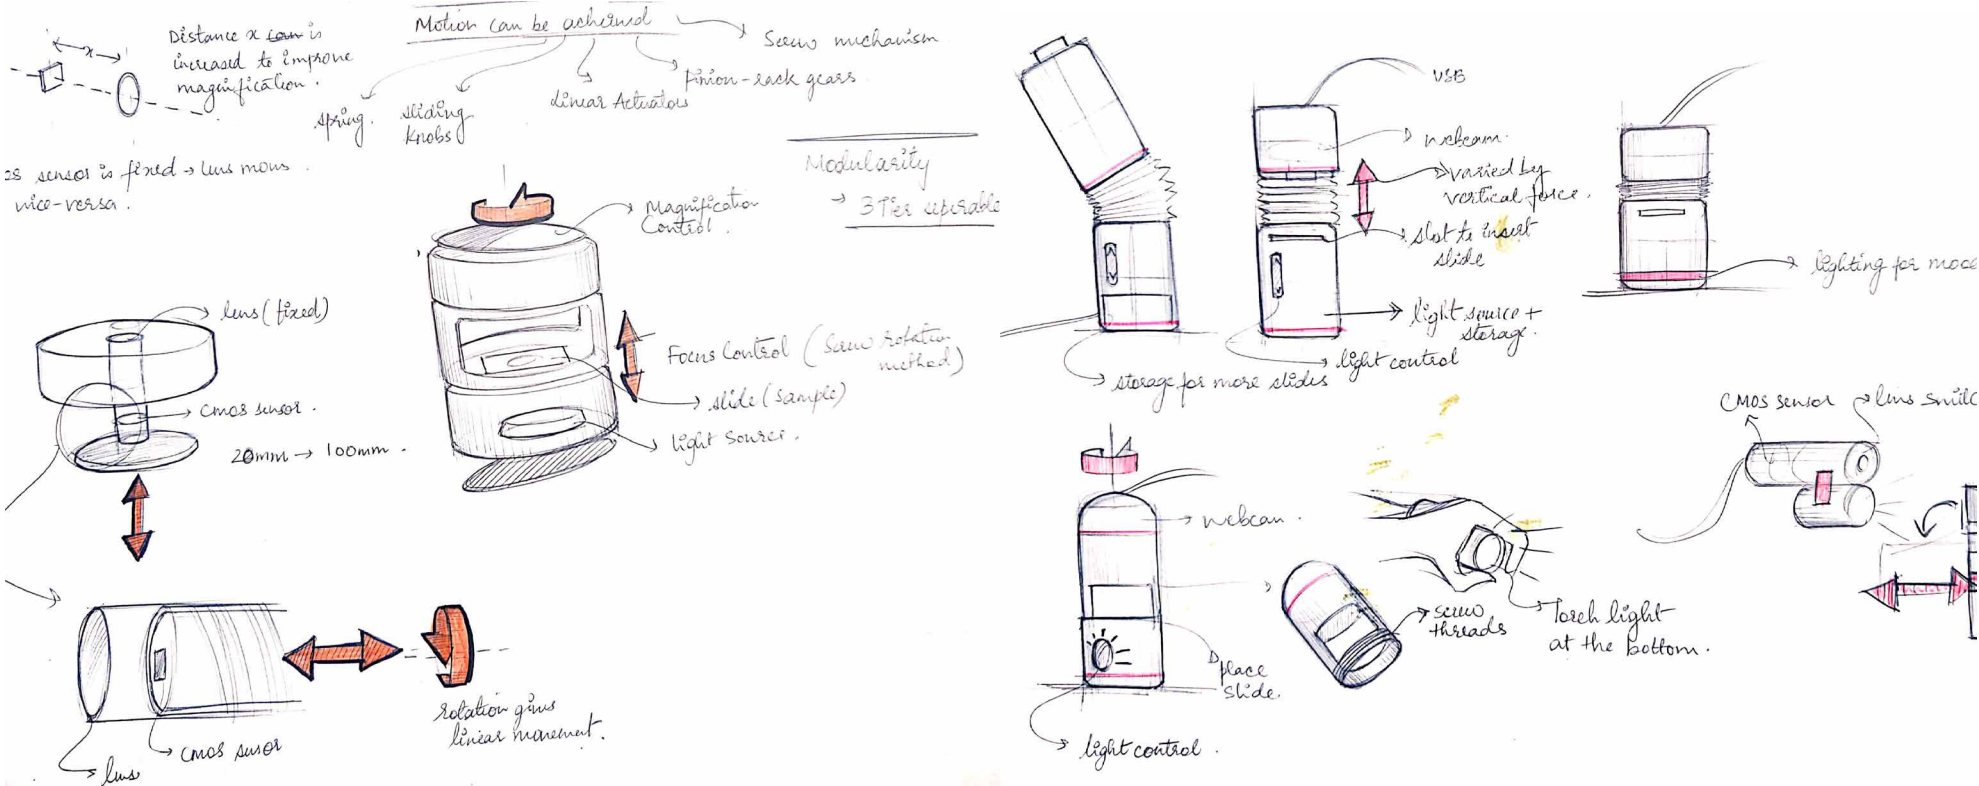 Distance x is
increased to improve
magnification.
x
Motion can be acheived
Screw mechanism
Pinion-rack gears
Linear Actuators
sliding
knobs
spring
sensor is fixed → lens moves
vice-versa.
Modularity
→ 3 Tier seperable
Magnification
Control.
lens (fixed)
CMOS sensor.
20mm → 100mm.
Focus Control (Screw rotation
method)
slide (Sample)
light source.
rotation gives
linear movement.
CMOS sensor
lens
USB
webcam.
varied by
vertical force.
slot to insert
slide
light source +
storage.
light control
storage for more slides
lighting for
CMOS sensor
lens
webcam.
screw
threads
Torch light
at the bottom.
place
slide.
light control.